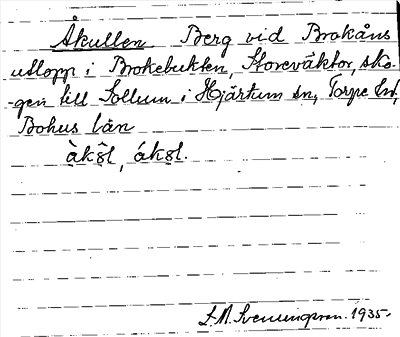 Åkullen Berg vid Brokåns
utlopp i Brokebukten, Storeväktor, sko-
-gen till Sollum i Hjärtum sn, Torpe hd,
Bohus län
àks̥l, áks̥l.
S. M. Svenungsson. 1935.